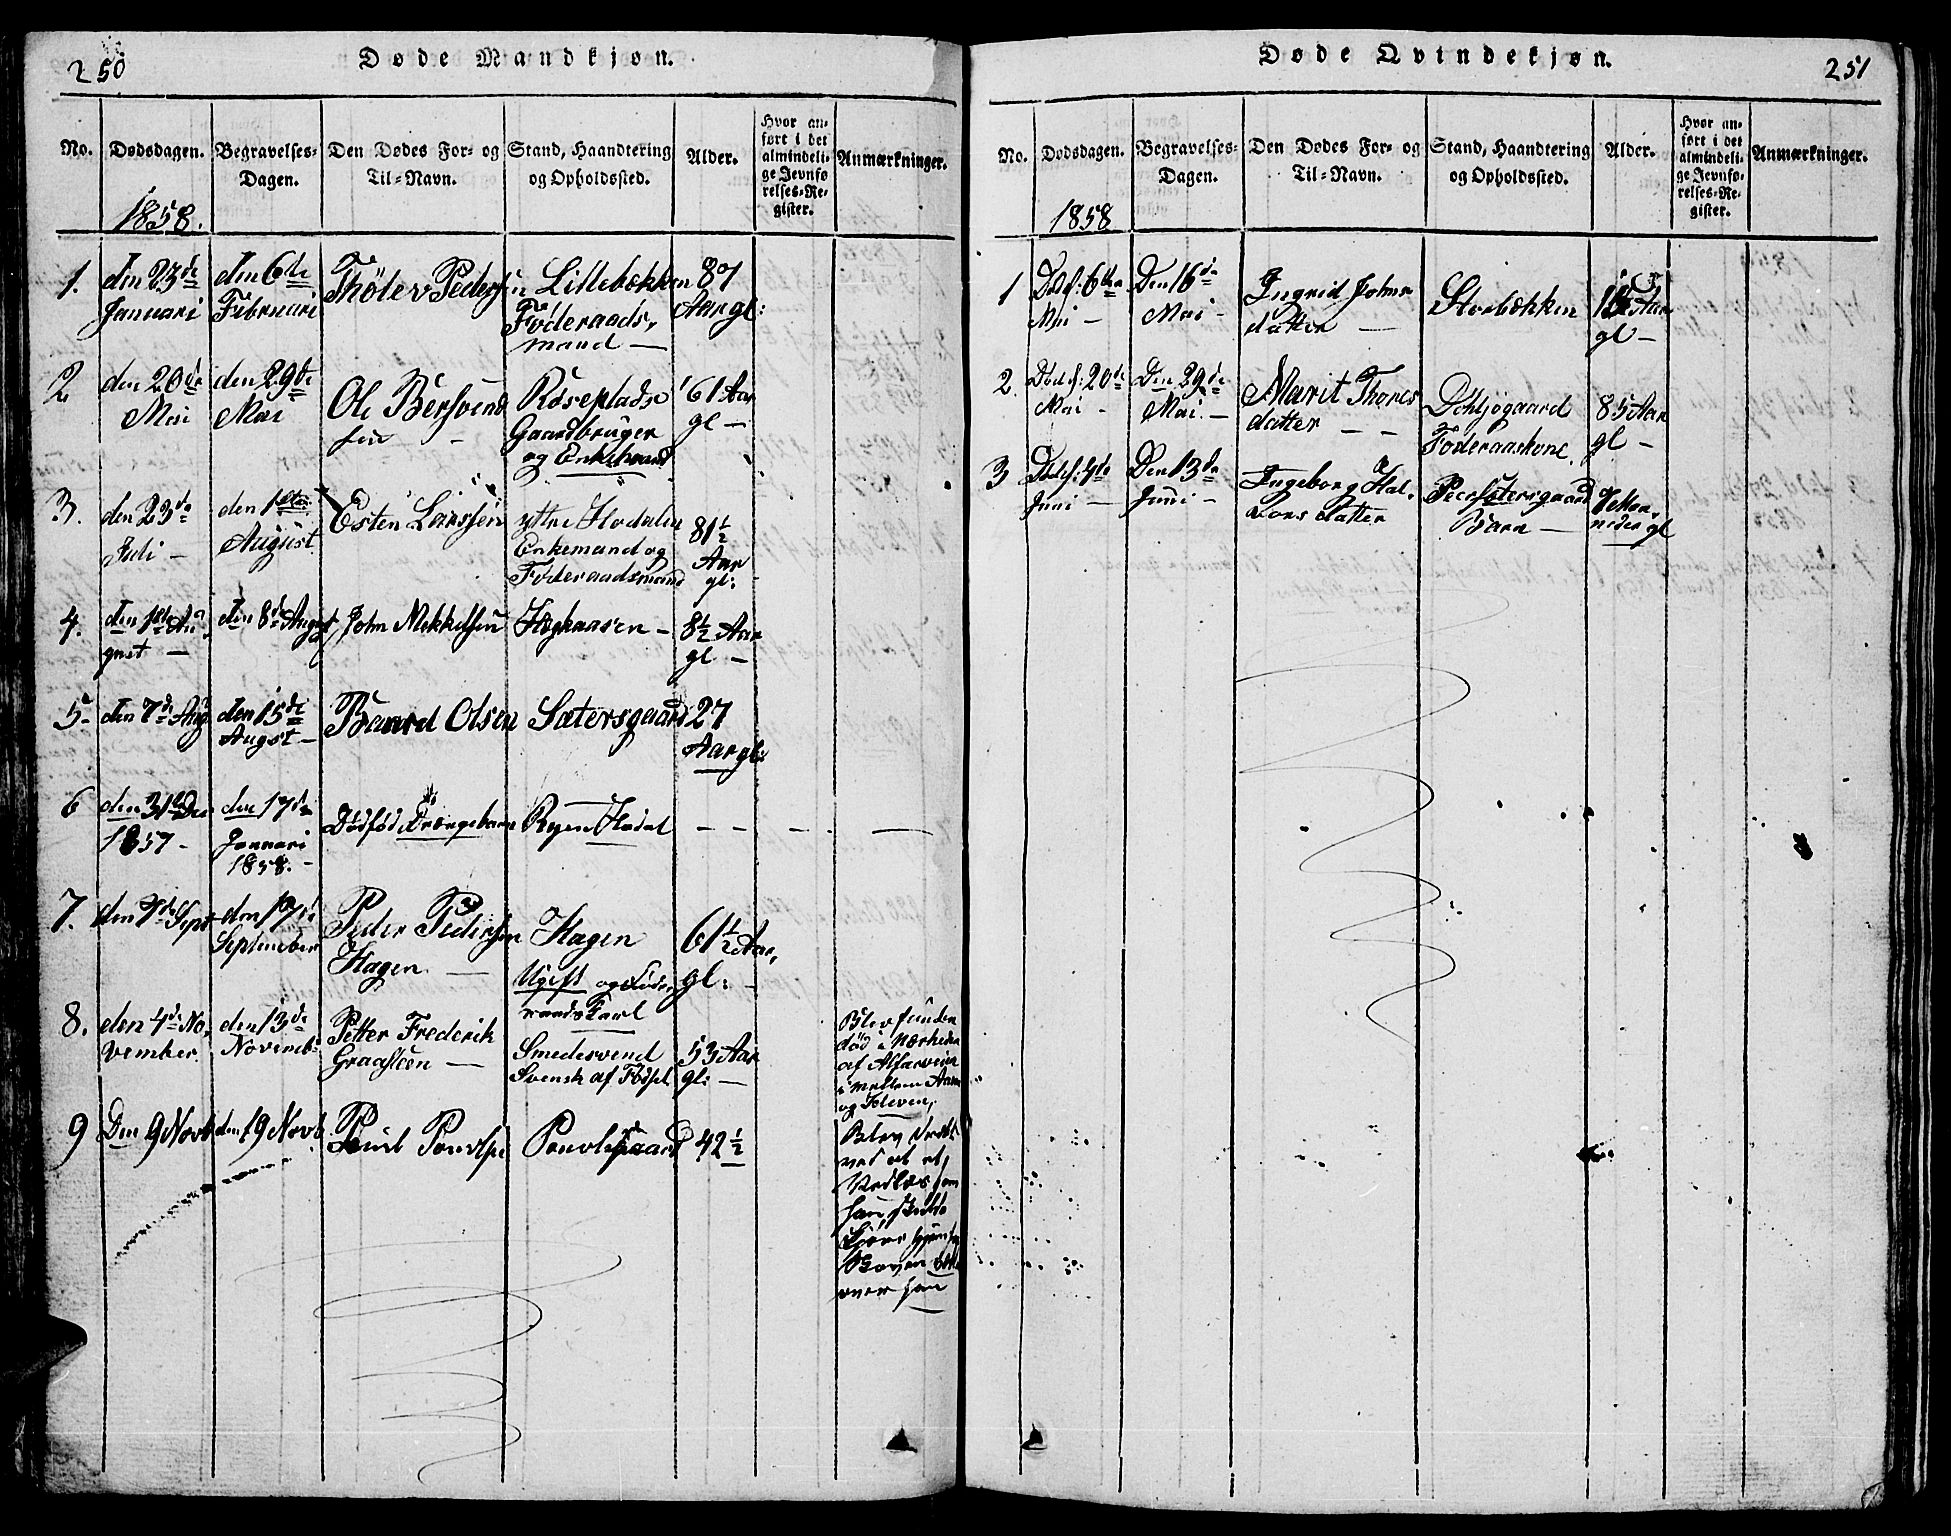 250
Døde Mandkjøn.
No.
Dødsdagen.
Begravelses-
Dagen.
Den Dødes For- og
Til-Navn.
Stand, Haandtering
og Opholdssted.
Alder.
Hvor an-
ført i det
almindeli-
ge Jevnfø-
relses-Re-
gister.
Anmærkninger.
1858.
1.
den 23de
Januari
den 6te
Februari
Thøler Peders
Lillebækken
Föderaads,
mand —
87
Aar gl:
2
den 20de
Mai
den 29de
Mai
Ole Bersvend
sen —
Röseplads
Gaardbruger
og Enkemand
61 Aar
gl —
3.
den 23de
Juli —
den 1ste
August
Esten Larssen
yttre Hodalen
Enkemand og
Föderaadsmand
81½
Aar
gl:
4.
den 1ste Au
gust —
den 8de August
John Mikkelsen
Haakaasen —
8½ Aar
gl —
5.
den 7de Aug
den 15de
Augst —
Baard Olsen
Sætersgaard
27
Aar gl:
6
den 31te Dec
1857 —
den 17de
Januari
1858. —
Dödfödt Drengebarn
Ryen Hodal
— —
7.
den 7de Sept
den 17de
September
Peder Pedersen
Hagen —
Hagen
Ugift og Föde-
raads Karl
61½ Aar,
gl: —
8.
den 4de No,
vember.
den 13de
Novemb:
Petter Frederik
Graasteen —
Smedesvend
Svensk af Födsel
53 Aar
gl: —
Blev funden
död i Nærheden
af Alfarveien
imellem Aasen
og Eleven,
9
Den 9 Novb
den 19 Novb
Poul
42½
Blev
ved at et
Vedlæs som
han skulde
kjøre hjem fra
Skoven
over ham
Døde Qvindekjøn.
251
No.
Dødsdagen.
Begravelses-
Dagen.
Den Dødes For- og
Til-Navn.
Stand, Haandtering
og Opholdssted.
Alder.
Hvor an-
ført i det
almindeli-
ge Jevnfø-
relses-Re-
gister.
Anmærkninger.
1858
1
Död f: 6te
Mai —
Den 16de
Mai —
Ingrid Johns
datter —
Storbækken
Aar
gl —
2
Död f: 20de
Mai —
Den 29de
Mai —
Marit Thores
datter — —
Föderaaskone
85 Aar
gl —
3
Död f: 4de
Juni —
Den 13de
Juni —
Ingeborg Hal,
vors datter
Peersætersgaard
Barn —
Maa,
neder gl